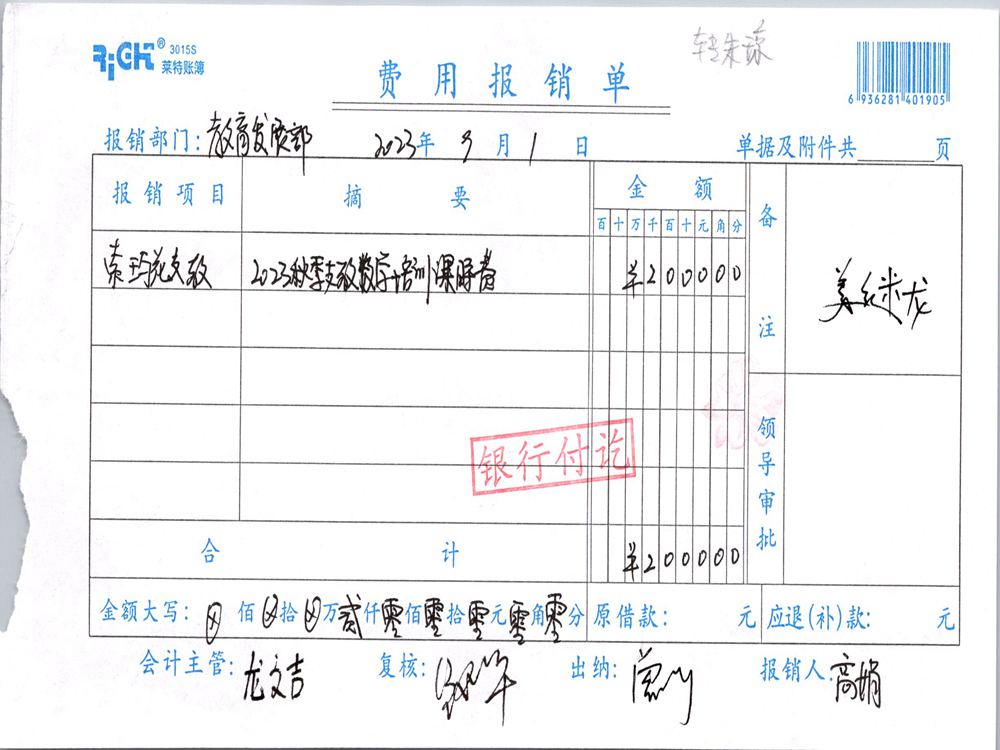 RiGHT® 3015S
莱特账簿
转朱琼
费用报销单
6 936281 401905
报销部门：教育发展部 2023年 9月 1日 单据及附件共 页
报销项目 摘要 金额 备注
百十万千百十元角分
索玛花支教 2023秋季支教数字培训课时费 ¥200000
领导审批
银行付讫
合计 ¥200000
金额大写：⊗佰⊗拾⊗万贰仟零佰零拾零元零角零分 原借款： 元 应退(补)款： 元
会计主管：龙文吉 复核： 出纳： 报销人：高娟